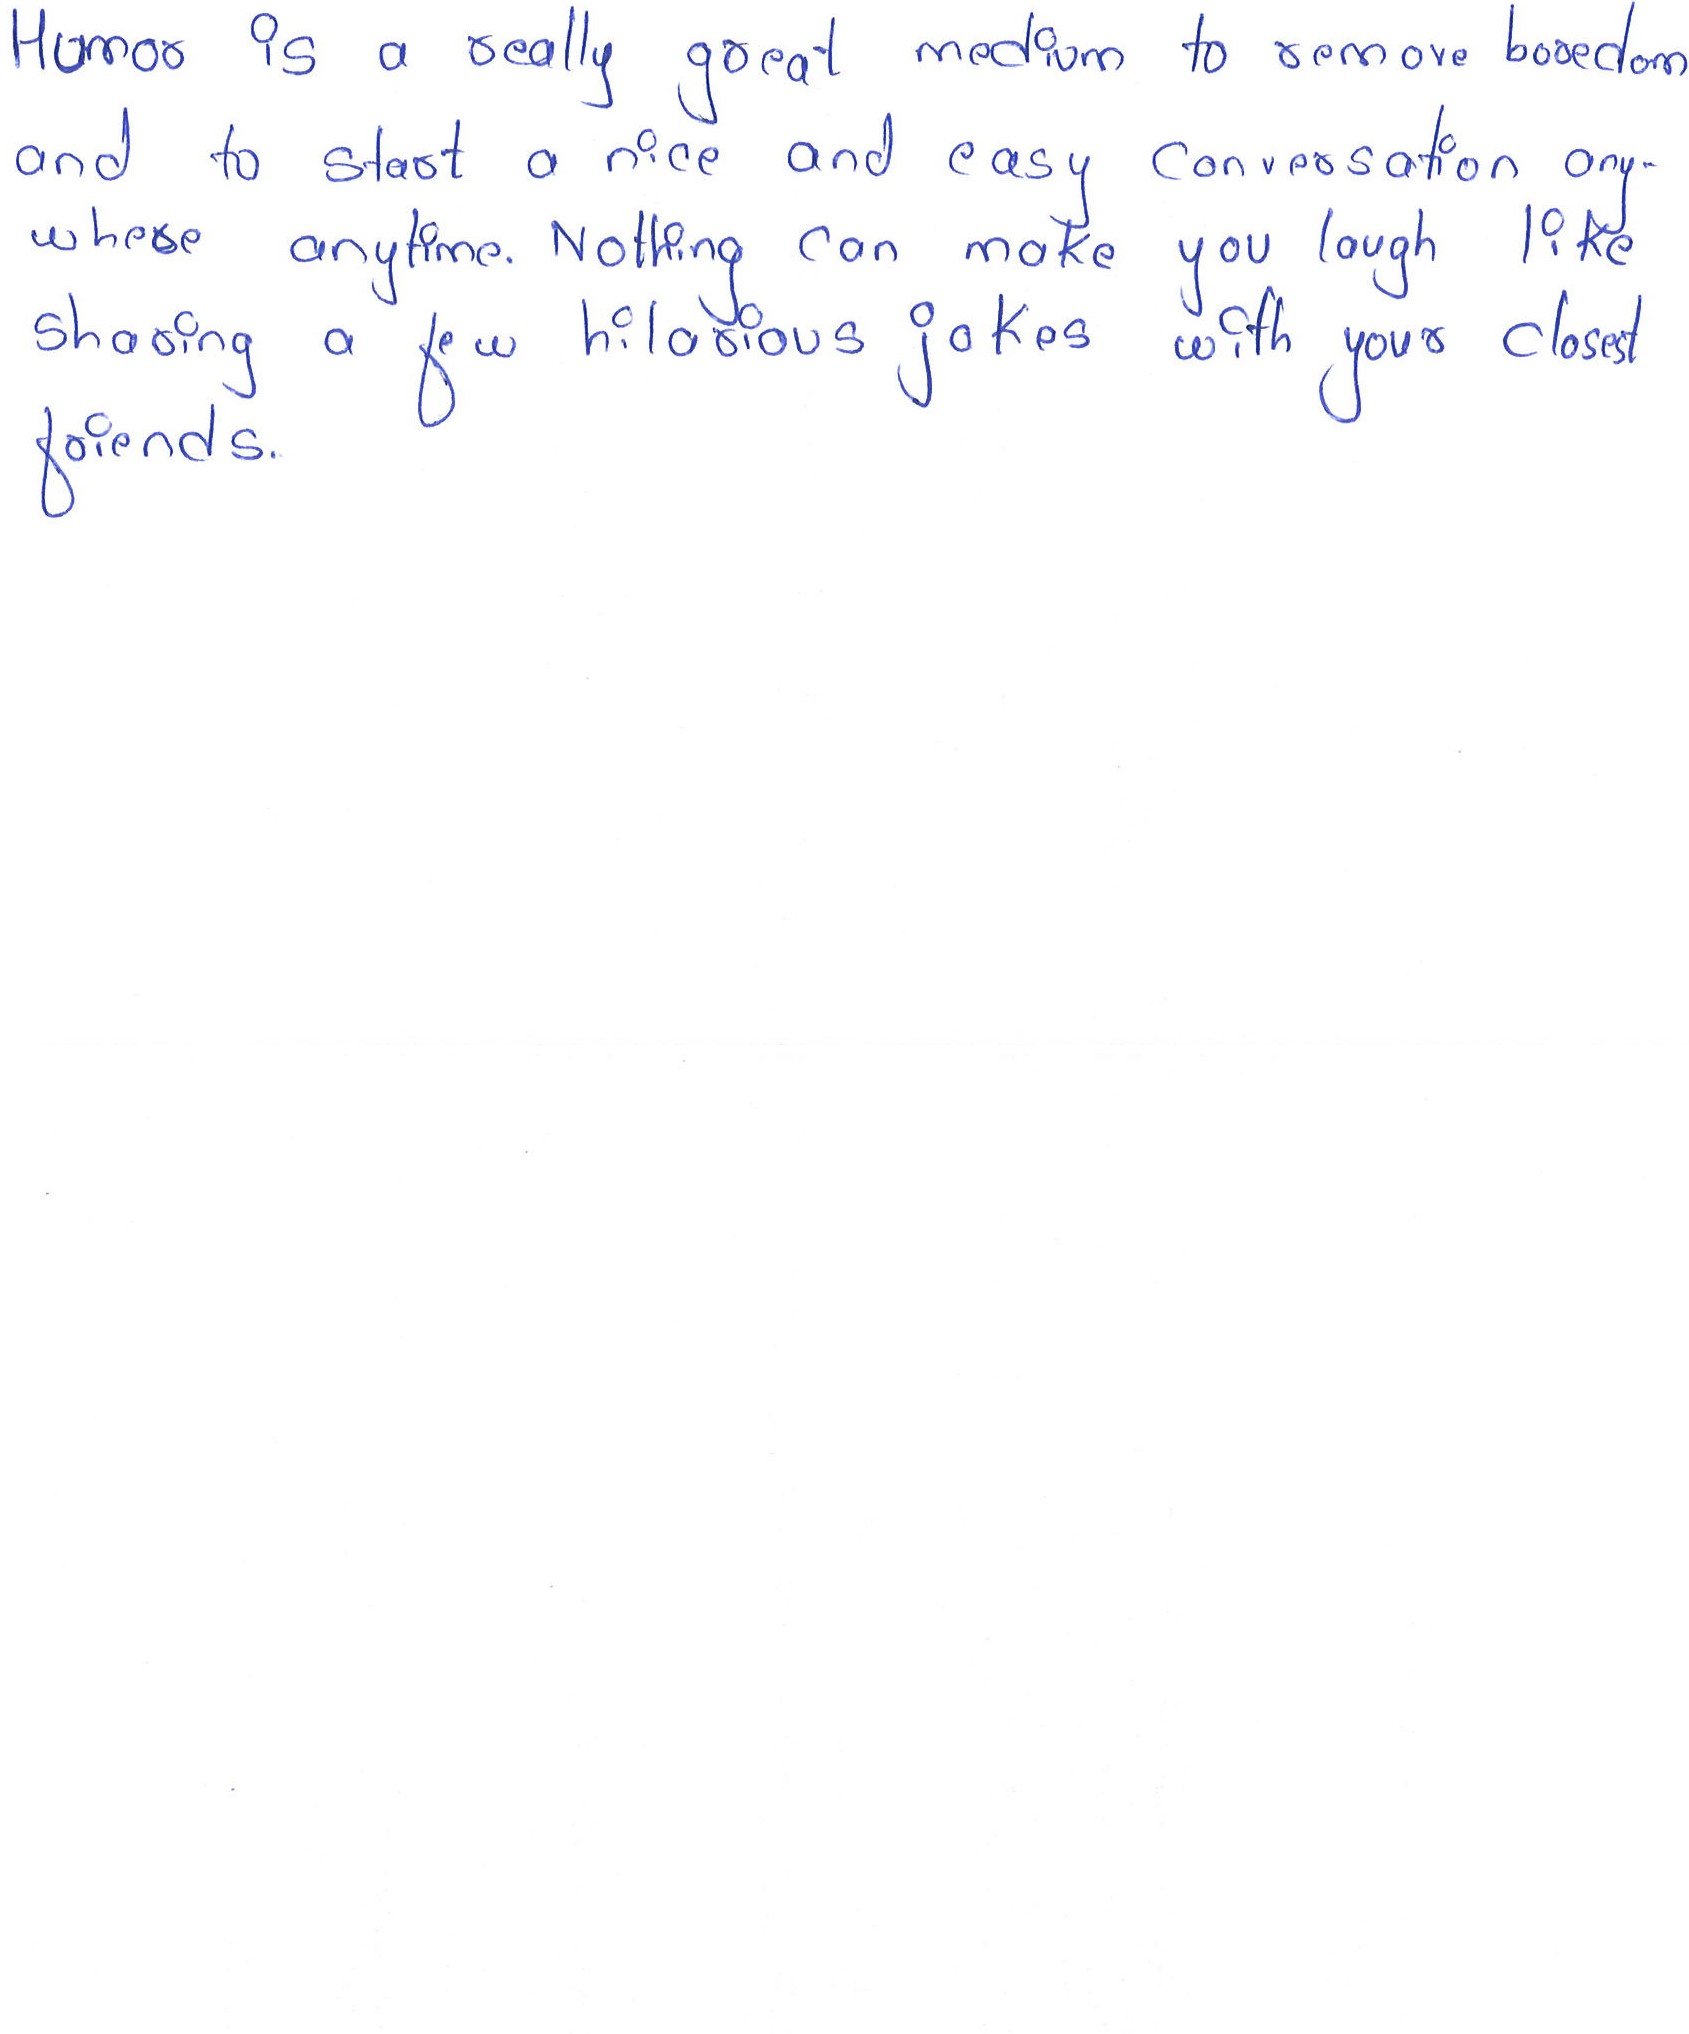 Humor is a really great medium to remove boredom
and to start a nice and easy conversation any-
where anytime. Nothing can make you laugh like
sharing a few hilarious jokes with your closest
friends.